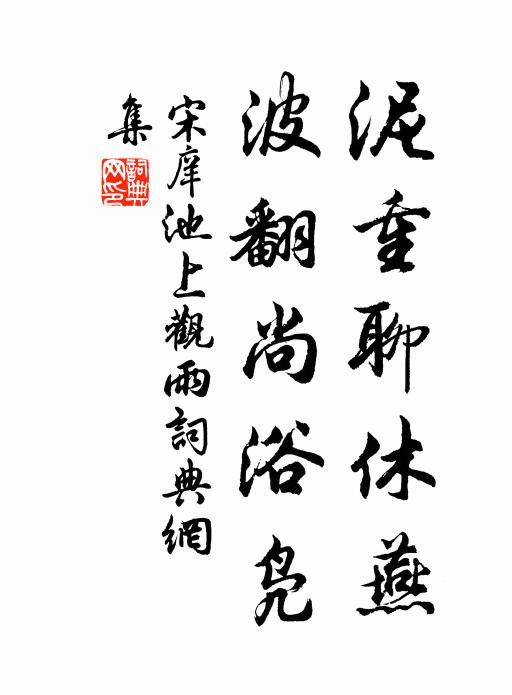 泥重聊休燕
波翻尚浴凫
宋庠池上觀雨詞典網
集
詞典
网印